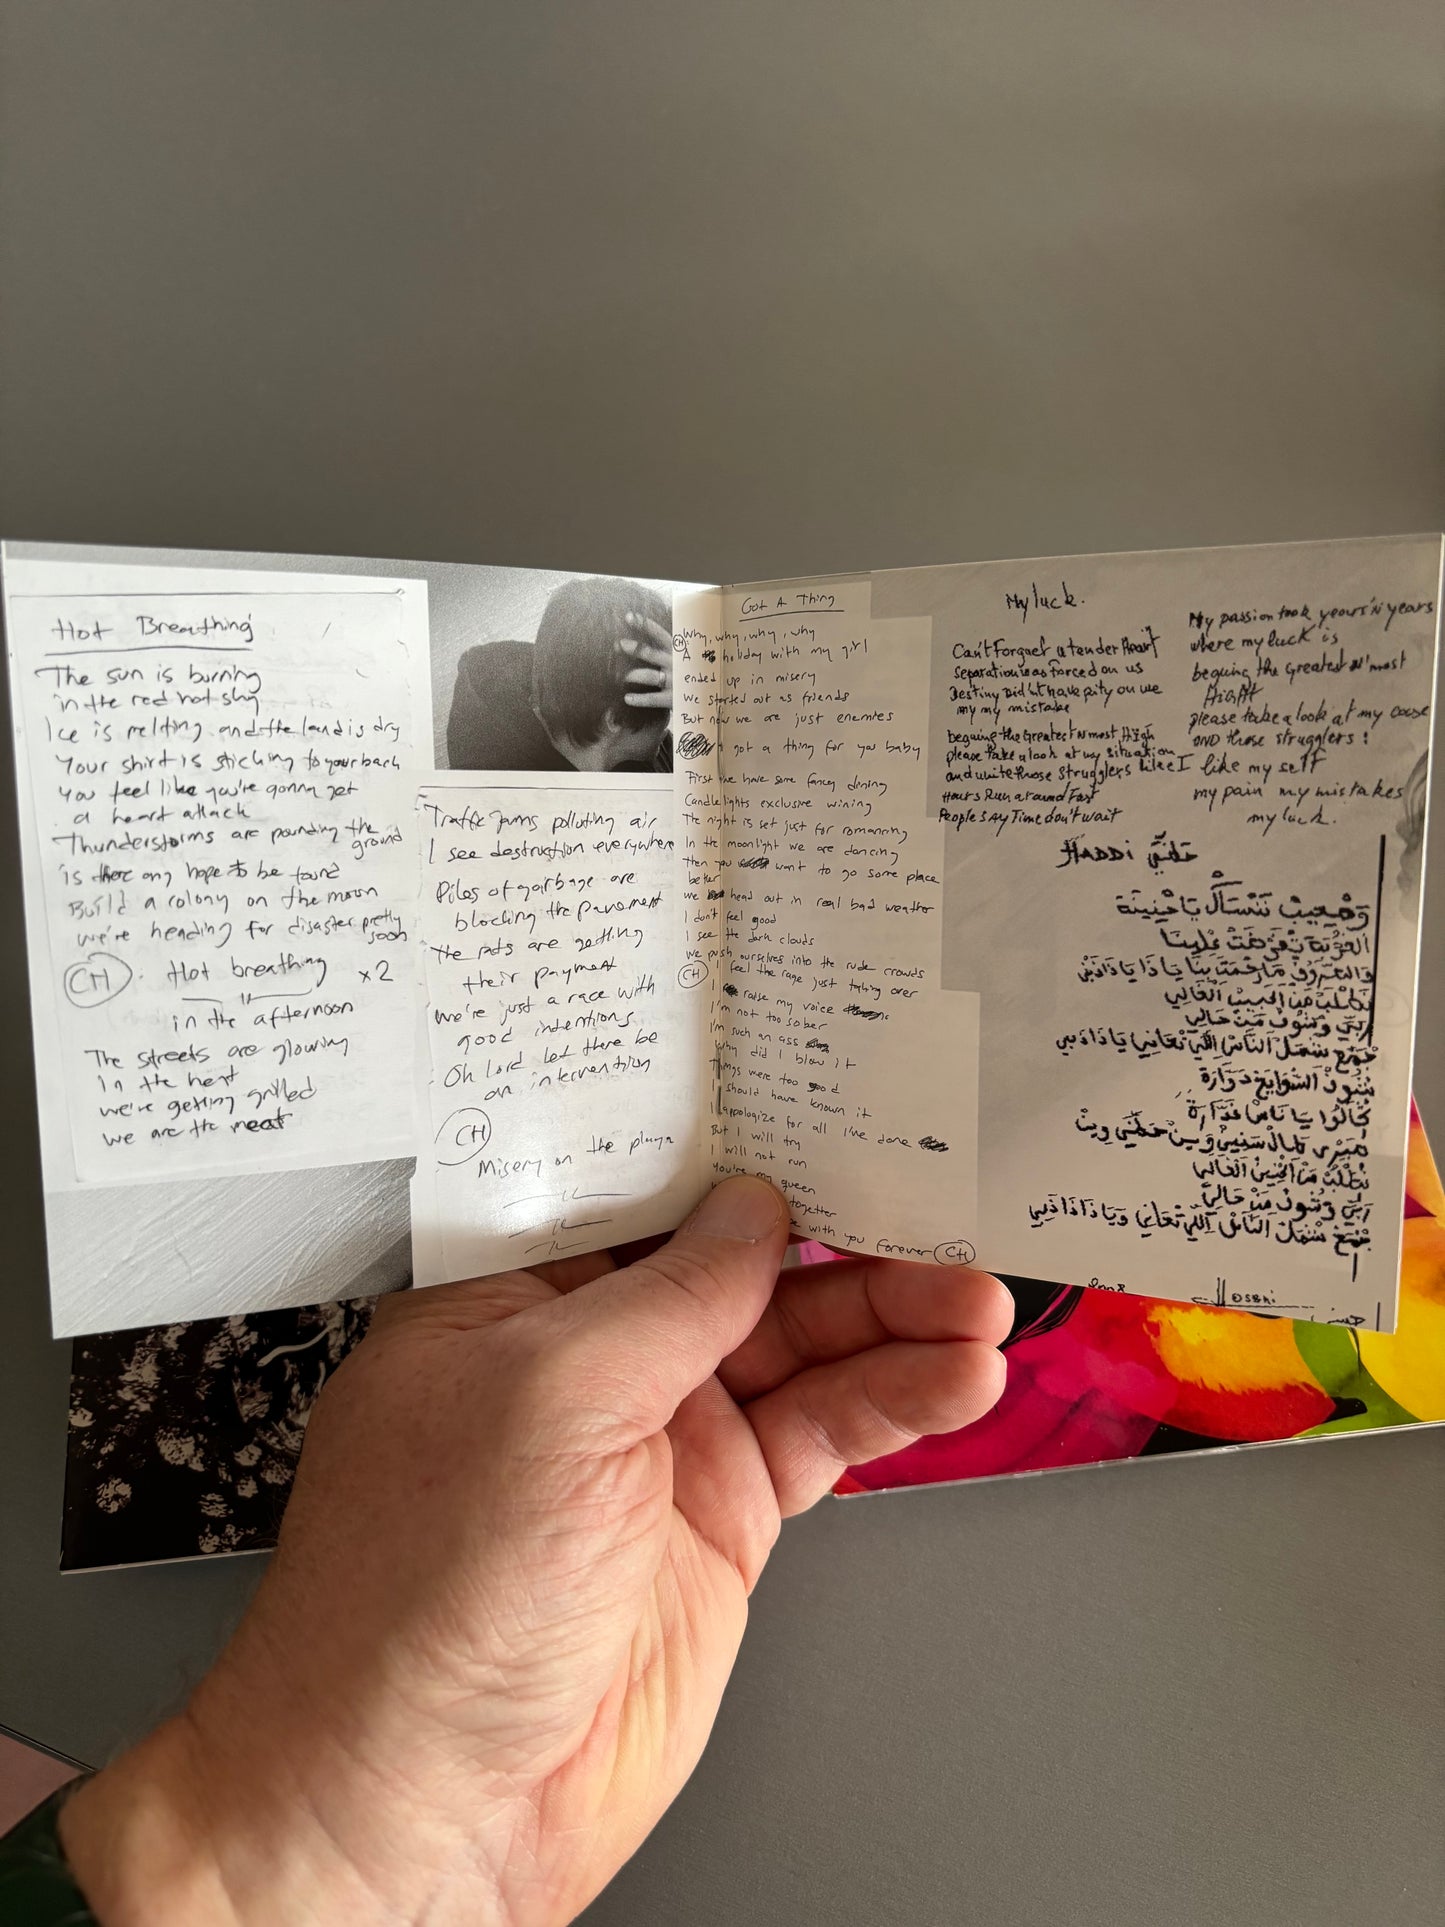 Hot Breathing
The sun is burning
in the red hot sky
Ice is melting and the land is dry
Your shirt is sticking to your back
You feel like you're gonna get
a heart attack
Thunderstorms are pounding the
ground
is there any hope to be found
Build a colony on the moon
we're heading for disaster pretty
soon
CH Hot breathing x2
in the afternoon
The streets are glowing
In the heat
we're getting grilled
we are the meat
Traffic Jams polluting air
I see destruction everywhere
Piles of garbage are
blocking the pavement
the rats are getting
their payment
we're just a race with
good intentions
Oh lord let there be
an intervention
CH
Misery on the playa
Got A Thing
CH Why, why, why, why
A holiday with my girl
ended up in misery
We started out as friends
But now we are just enemies
got a thing for you baby
First we have some fancy dining
Candlelights exclusive wining
The night is set just for romancing
In the moonlight we are dancing
Then you want to go some place
better
We head out in real bad weather
I don't feel good
I see the dark clouds
We push ourselves into the rude crowds
CH I feel the rage just taking over
I raise my voice
I'm not too sober
I'm such an ass
Why did I blow it
Things were too good
I should have known it
I apologize for all I've done
But I will try
I will not run
You're my queen
together
with you forever CH
My luck.
Can't Forguet a tender Heart
separation was forced on us
Destiny Did'nt have pity on we
my my mistake
beguing the Greatest n most High
please take a look at my situation
and unite those strugglers like I
Hours Run around Fast
People SAy Time don't wait
My passion took years 'n years
where my luck is
beguing the Greatest n' most
HigH
please take a look at my
AND those strugglers:
like my self
my pain my mistakes
my luck.
HADDi
وصعيب ننسال يا حنينة
نطلب من الحبيب الغالي
ربي وشوف من حالي
شوف السوايع دوارة
نطلب من الحنين الغالي
ربي وشوف من حالي
2008
Hosbni